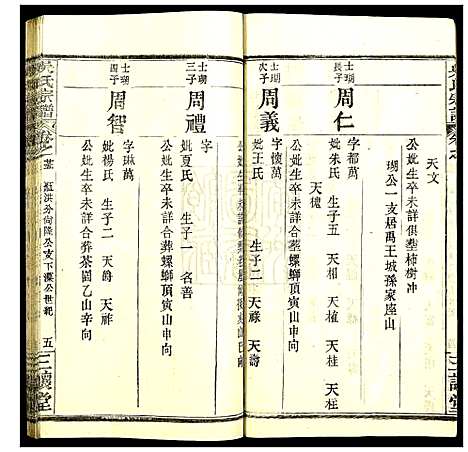 天文
公妣生卒未詳俱塟柿樹冲
瑚公一支居禹王城孫家座山
士瑚長子
周仁
字都萬
妣朱氏 生子五 天相 天植 天柱 天杠
天槐
公妣生卒未詳合塟螺螄頂寅山申向
士瑚次子
周義
字懷萬
妣王氏 生子二 天祿 天壽
公妣生卒未詳
士瑚三子
周禮
字
妣夏氏 生子一 名善
公妣生卒未詳合葬螺螄頂寅山申向
士瑚四子
周智
字琳萬
妣楊氏 生子二 天爵 天祥
公妣生卒未詳合葬茶園乙山辛向
吳氏宗譜
洪分尚隆公支下漢公世紀
五
三讓堂